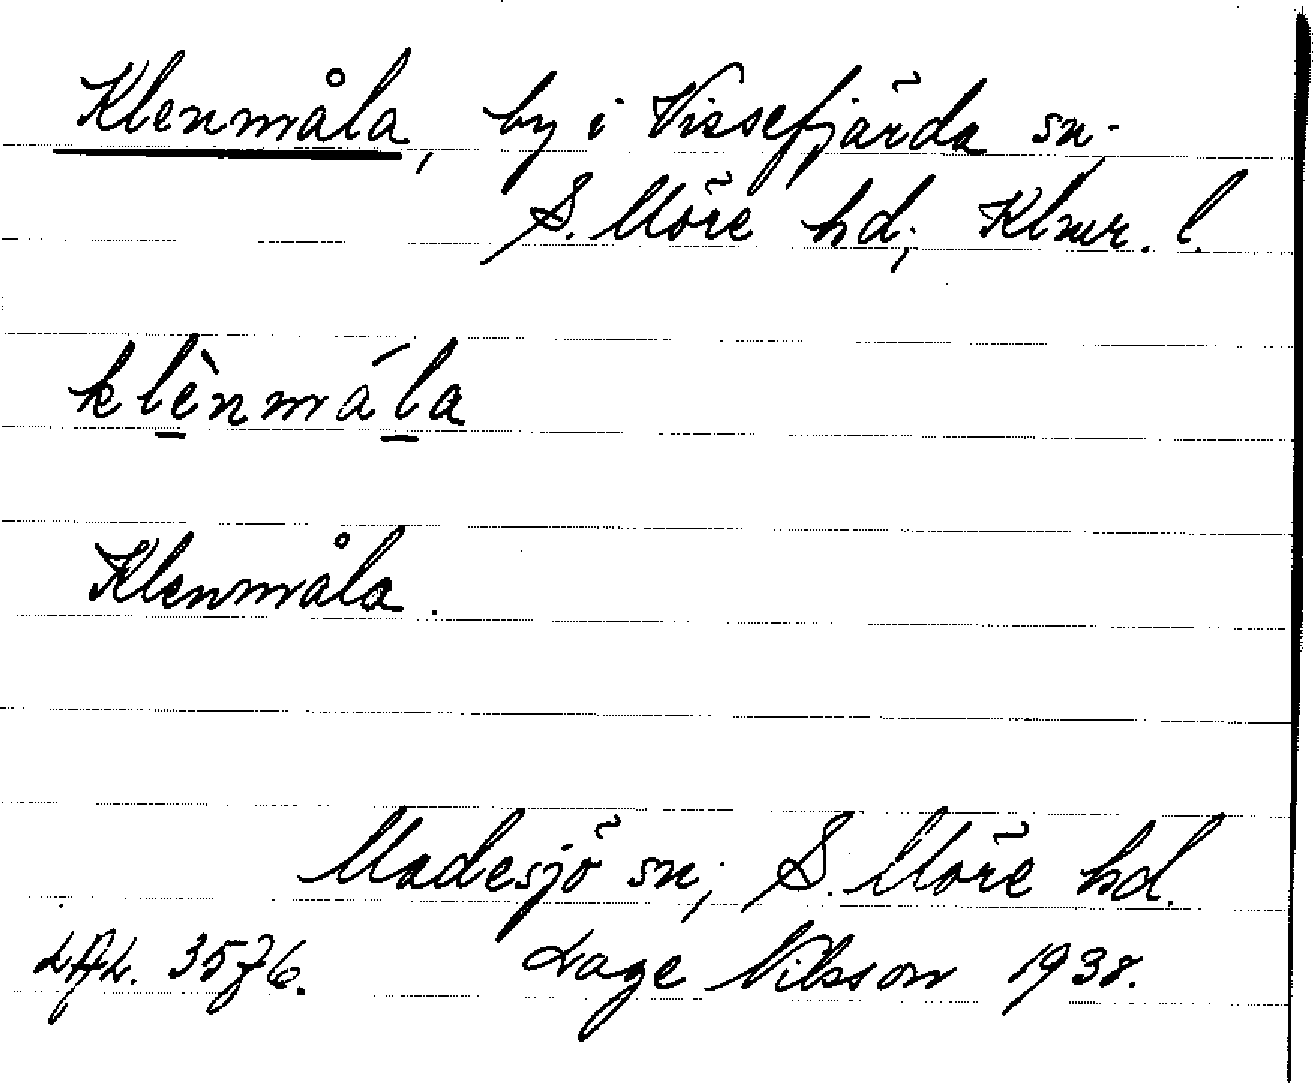 Klenmåla, by i Vissefjärda sn.
S. Möre hd; Klmr. l.
klènmála
Klenmåla.
Madesjö sn; S. Möre hd.
3576. Lage Nilsson 1938.